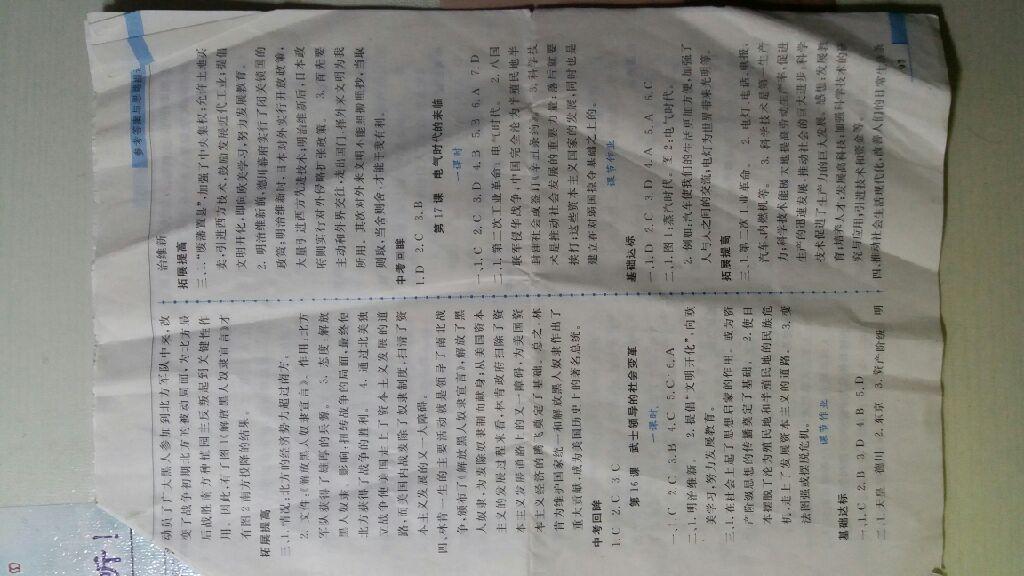 参考答案与思路
动员了广大黑人参加到北方军队中来,改
变了战争初期北方军被动局面,为北方最
后战胜南方种植园主反叛起到关键性作
用。因此,有了图1《解放黑人奴隶宣言》才
有图2南方投降的结果。
拓展提高
三、1.情况:北方的经济势力超过南方。
2.文件:《解放黑人奴隶宣言》。作用:北方
军队获得了雄厚的兵源。 3.态度:解放
黑人奴隶。影响:扭转战争的局面,最终使
北方获得了战争的胜利。 4.通过北美独
立战争使美国走上了资本主义发展的道
路,而美国内战废除了奴隶制度,扫清了资
本主义发展的又一大障碍。
四、林肯一生的主要活动就是领导了南北战
争,颁布了《解放黑人奴隶宣言》,解放了黑
人奴隶,为废除奴隶制而献身;从美国资本
主义的发展过程来看,林肯政府扫除了资
本主义发展道路上的又一障碍,为美国资
本主义经济的腾飞奠定了基础。总之,林
肯为维护国家统一和解放黑人奴隶作出了
重大贡献,成为美国历史上的著名总统。
中考回眸
1.C 2.C 3.C
第16课 武士领导的社会变革
一课时
一、1.C 2.C 3.B 4.C 5.C 6.A
二、1.明治维新。 2.提倡“文明开化”,向欧
美学习,努力发展教育。
三、1.在社会上起了思想启蒙的作用,成为资
产阶级思想的传播奠定了基础。 2.使日
本摆脱了沦为殖民地和半殖民地的民族危
机,走上了发展资本主义的道路。 3.变
法图强或摆脱危机。
课节作业
基础达标
一、1.C 2.B 3.D 4.B 5.D
二、1.天皇 德川 2.东京 3.资产阶级 明
治维新
拓展提高
三、1.“废藩置县”,加强了中央集权;允许土地买
卖,引进西方技术,鼓励发展近代工业;提倡
文明开化,即向欧美学习,努力发展教育。
2.明治维新前,德川幕府实行了闭关锁国的
政策;明治维新时,日本对外实行开放政策,
大量引进西方先进技术;明治维新后,日本政
府则实行对外侵略扩张政策。 3.首先要
主动和外界交往,走出国门,择外来文明为我
所用。其次对外来文明不能照和照抄,当取
则取,当舍则舍,才能于我有利。
中考回眸
1.D 2.C 3.B
第17课 电气时代的来临
一课时
一、1.C 2.C 3.D 4.B 5.B 6.A 7.D
二、1.第二次工业革命。电气时代。 2.八国
联军侵华战争;中国完全沦为半殖民地半
封建社会 3.科学技
术是推动社会发展的重要力量;落后就要
挨打;这些资本主义国家的发展,同时也是
建立在对弱国掠夺基础之上的。
课节作业
基础达标
一、1.D 2.C 3.D 4.A 5.A 6.C
二、1.图1:蒸汽时代。图2:电气时代。
2.例如:汽车使我们的生活更加方便,加强了
人与人之间的交流;电灯为世界带来光明等。
拓展提高
三、1.第二次工业革命。 2.电灯、电话、电报、
汽车、内燃机等。 3.科学技术是第一生产
力,科学技术能极大地提高劳动生产率,促进
生产的迅速发展,推动社会的巨大进步;科学
技术促进了生产力的巨大发展。感想:发展教
育,培养人才;发展高科技;加强科学技术的研
究与应用;引进技术和资金等。
四、推动社会生活现代化,改善人们的日常生活
97